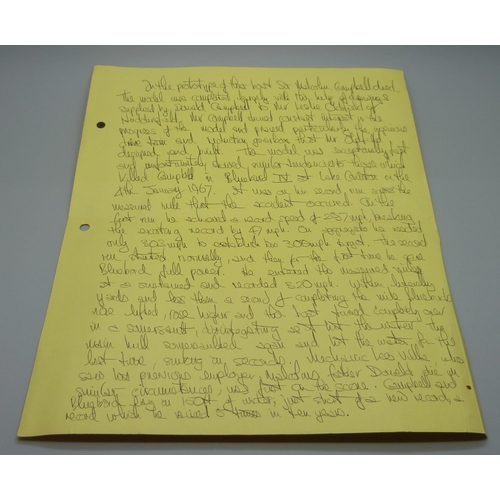 In the prototype of this boat Sir Malcolm Campbell died.
The model was completed with the help of drawings
supplied by Donald Campbell to Mr Leslie
Huddersfield, Mr Campbell showed constant interest in the
progress of the model and praised particularly the ingenious
drive train and gearbox that Mr
designed and built. The model was exceptionally fast
and unfortunately showed similar tendencies to those which
killed Campbell in Bluebird IV at Lake Coniston on the
4th January 1967. It was on his second run across the
measured mile that the accident occurred. On the
first run he achieved a record speed of 297 mph, breaking
the existing record by 47 mph. On aggregate he needed
only 303 mph to establish his 300 mph target. The second
run started normally, and then for the first time he gave
Bluebird full power. He entered the measured mile
at a sustained and recorded 320 mph. Within twenty
yards and less than a second of completing the mile, Bluebird's
nose lifted, rose higher and the boat turned completely over
in a somersault, disintegrating as it hit the water. The
main hull somersaulted again and hit the water for the
last time, sinking in seconds. Mechanic Leo Villa, who
saw his previous employer, Malcolm, father Donald, die in
similar circumstances, was first on the scene. Campbell and
Bluebird lay in 150ft of water, just short of a new record, a
record which he raised 5 times in ten years.